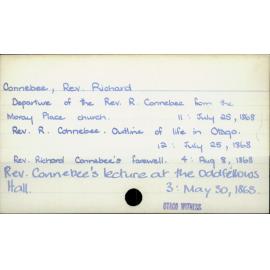 Connebee, Rev. Richard
Departure of the Rev. R. Connebee from the
Moray Place church. 11: July 25, 1868
Rev. R. Connebee. Outline of life in Otago.
12: July 25, 1868
Rev. Richard Connebee's farewell. 4: Aug 8, 1868
Rev. Connebee's lecture at the Oddfellows
Hall. 3: May 30, 1868.
OTAGO WITNESS